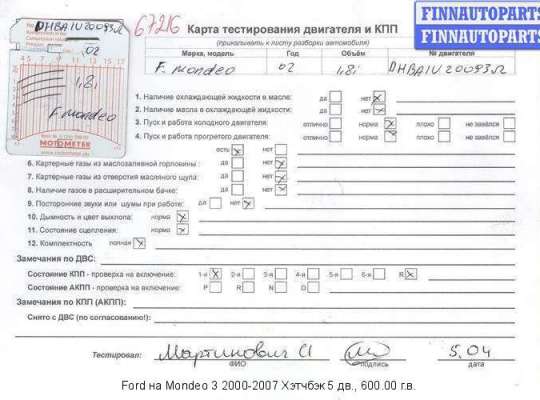 DHBA1U20093Л
02
1,8i
F. mondeo
MOTOMETER
67216
Карта тестирования двигателя и КПП
(прикалывать к листу разборки автомобиля)
FINNAUTOPARTS
FINNAUTOPARTS
Марка, модель Год Объём № двигателя
F. mondeo 02 1,8i DHBA1U20093Л
1. Наличие охлаждающей жидкости в масле: да нет
2. Наличие масла в охлаждающей жидкости: да нет
3. Пуск и работа холодного двигателя: отлично норма плохо не завёлся
4. Пуск и работа прогретого двигателя: отлично норма плохо не завёлся
есть нет
6. Картерные газы из маслозаливной горловины: да нет
7. Картерные газы из отверстия масляного щупа: да нет
8. Наличие газов в расширительном бачке: да нет
9. Посторонние звуки или шумы при работе: да нет
10. Дымность и цвет выхлопа: норма
11. Состояние сцепления: норма
12. Комплектность полная
Замечания по ДВС:
Состояние КПП - проверка на включение: 1-я 2-я 3-я 4-я 5-я 6-я R
Состояние АКПП - проверка на включение: P R N D
Замечания по КПП (АКПП):
Снято с ДВС (по согласованию!):
Тестировал: Мартинович И 5.04
ФИО подпись дата
Ford на Mondeo 3 2000-2007 Хэтчбэк 5 дв., 600.00 г.в.